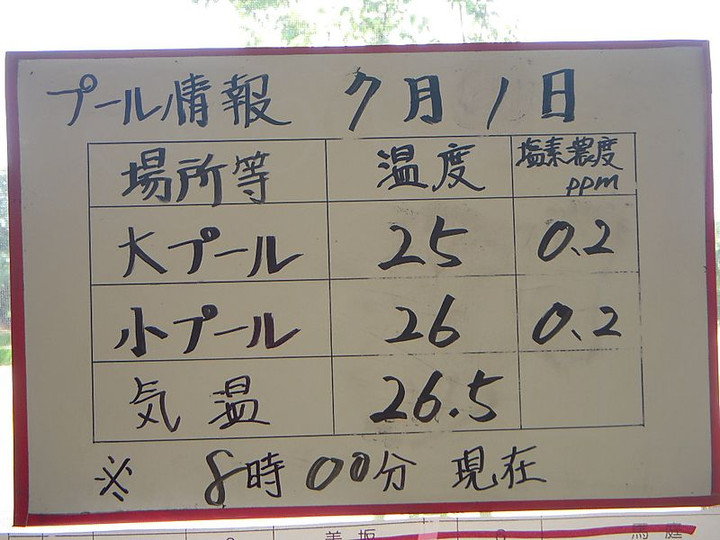 プール情報 7月1日
場所等 温度 塩素濃度 ppm
大プール 25 0.2
小プール 26 0.2
気温 26.5
※ 8時00分 現在